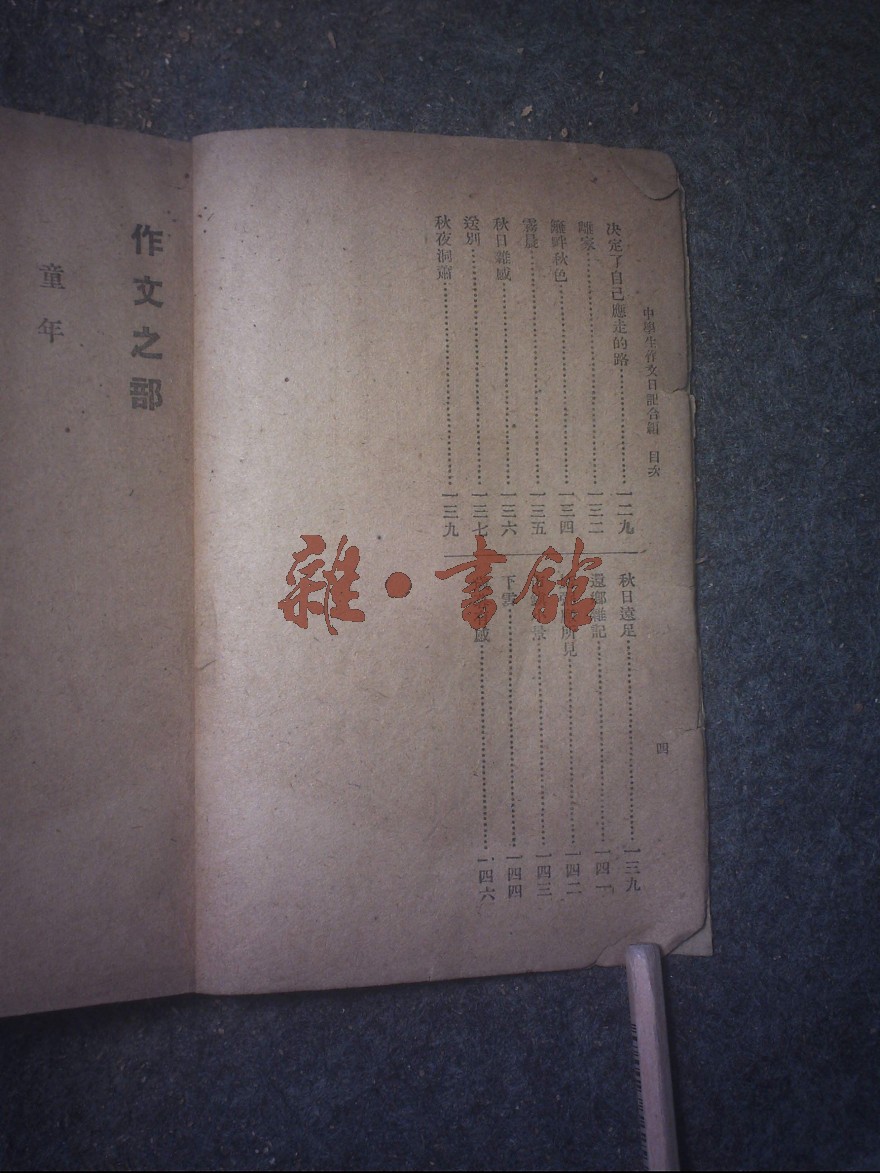 中學生作文日記合編 目次
四
決定了自己應走的路……一二九
離家……一三二
籬畔秋色……一三四
霧晨……一三五
秋日雜感……一三六
送別……一三七
秋夜洞簫……一三九
秋日遠足……一三九
還鄉雜記……一四一
所見……一四二
景……一四三
下雪……一四四
感……一四六
雜·書館
作文之部
童年